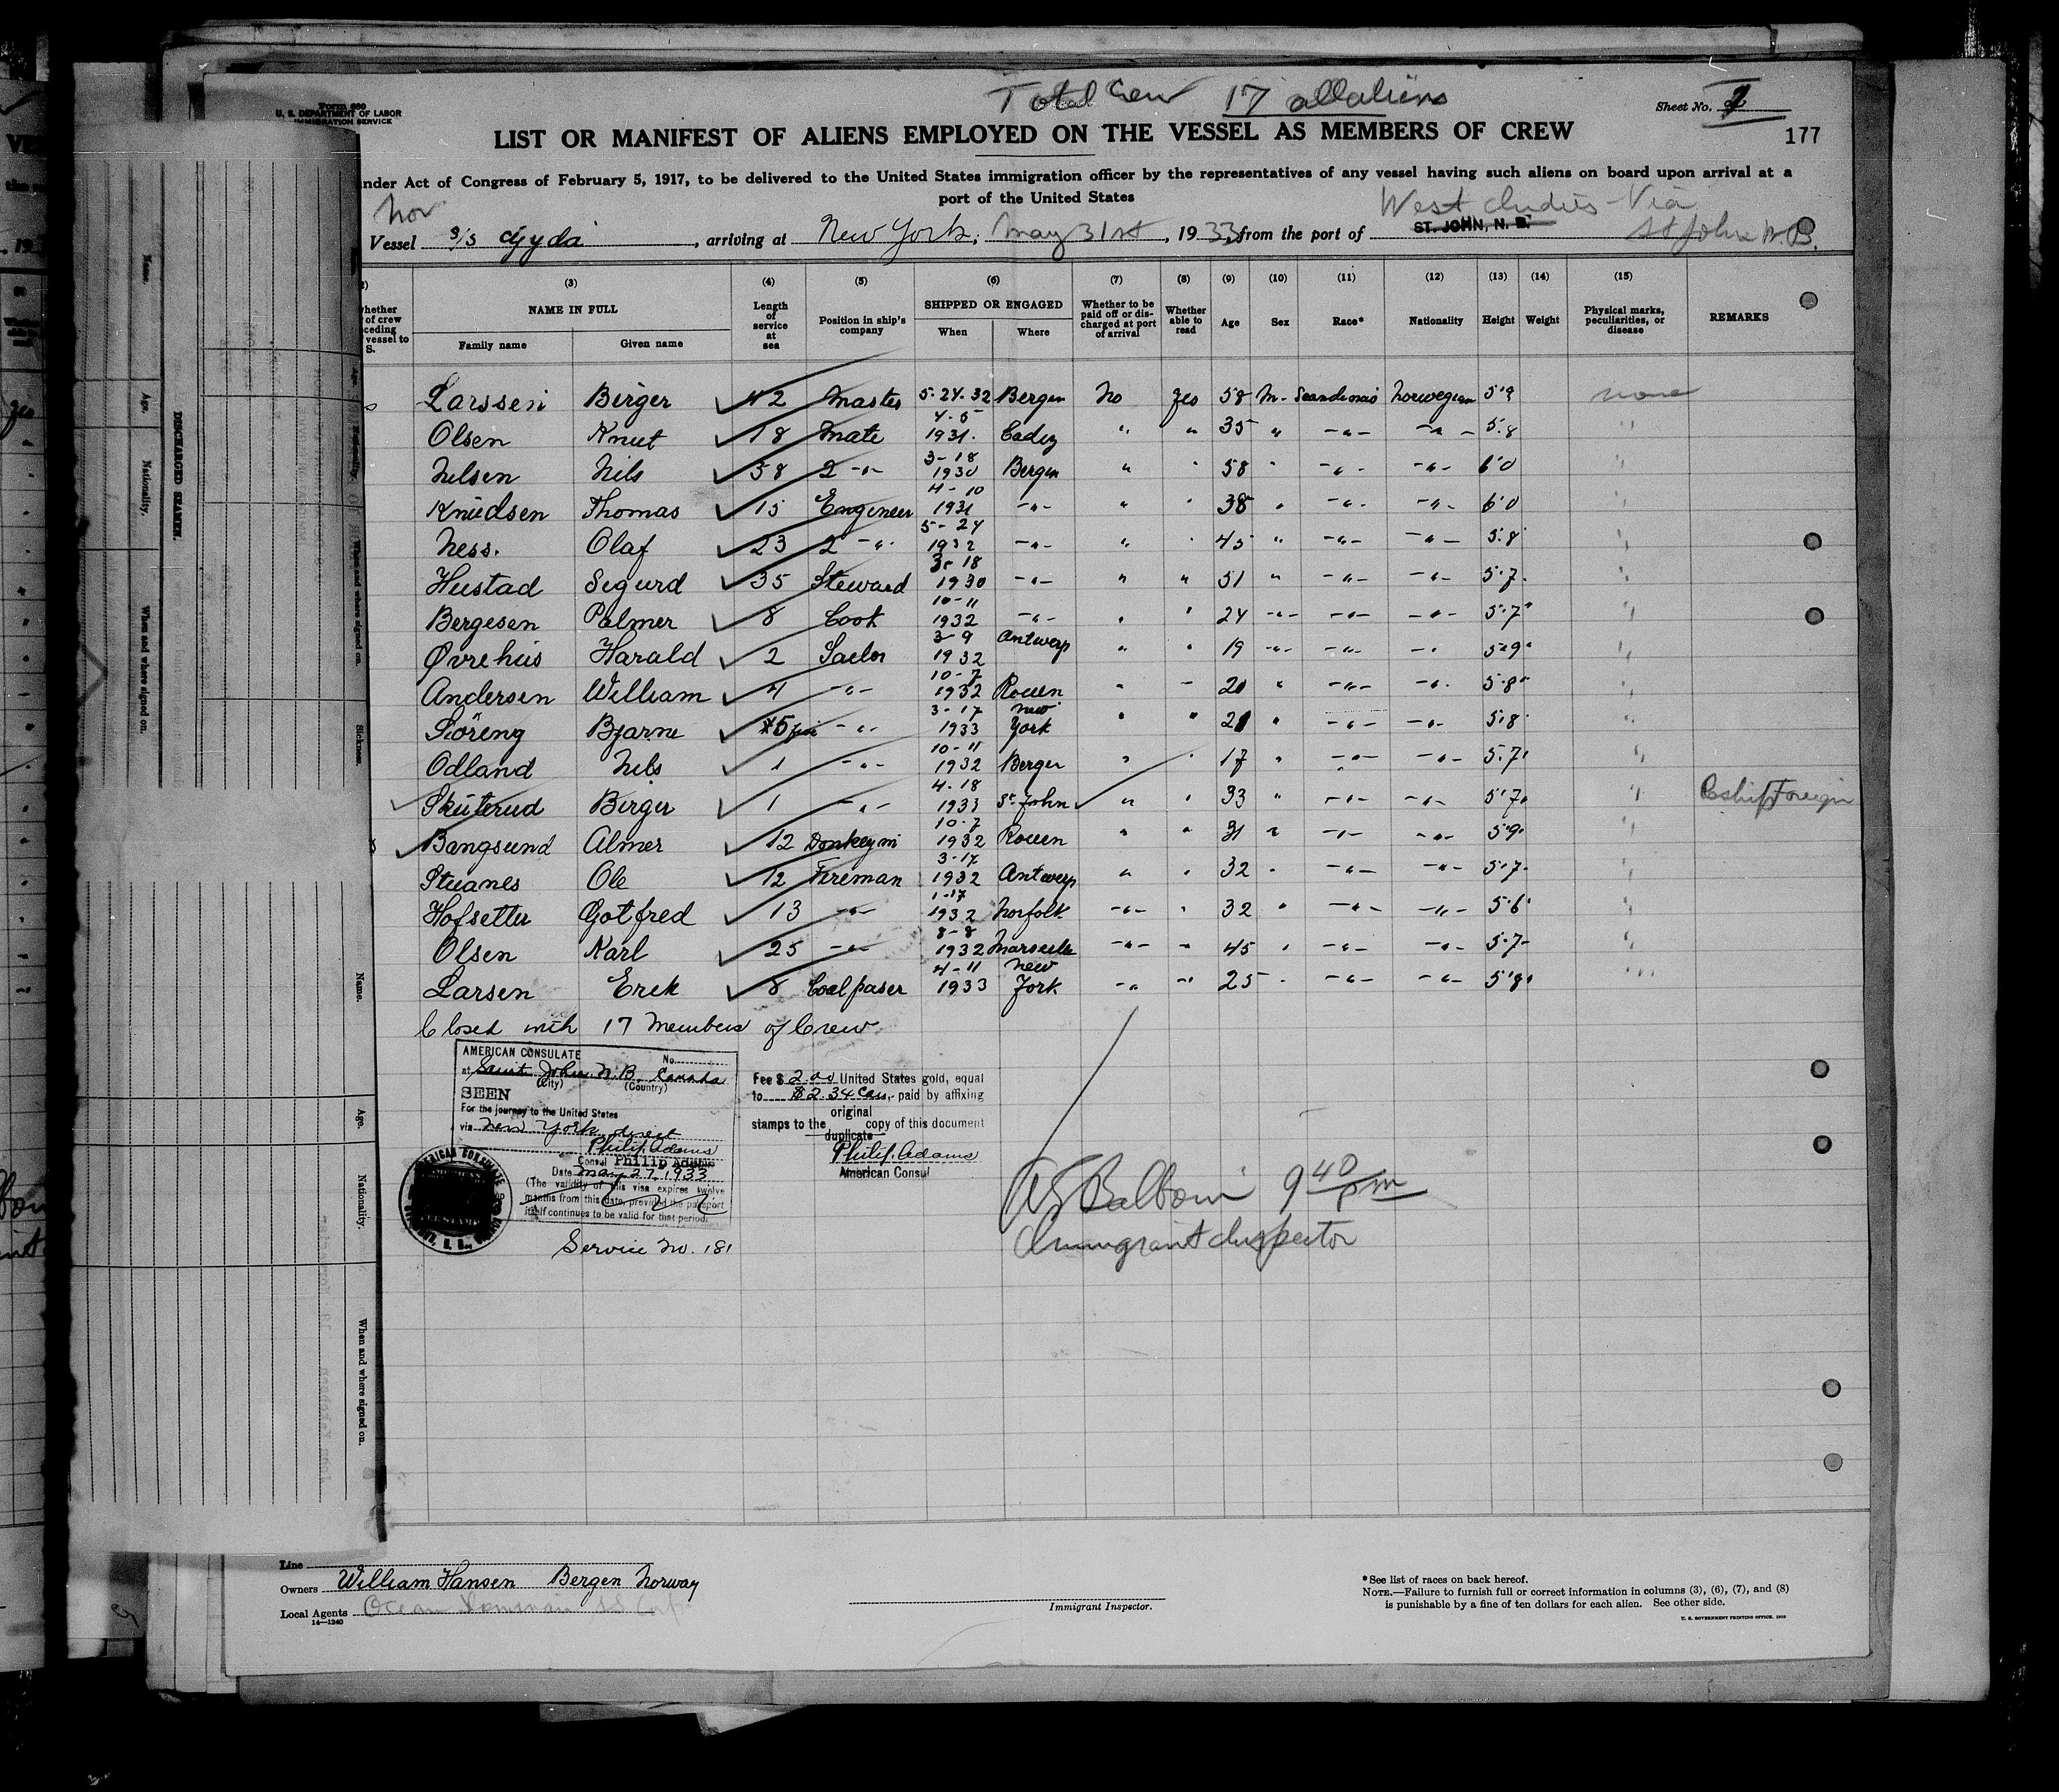 Total Crew 17 all aliens
Form 680
U. S. DEPARTMENT OF LABOR
IMMIGRATION SERVICE
Sheet No.
LIST OR MANIFEST OF ALIENS EMPLOYED ON THE VESSEL AS MEMBERS OF CREW
177
under Act of Congress of February 5, 1917, to be delivered to the United States immigration officer by the representatives of any vessel having such aliens on board upon arrival at a
port of the United States
Nor
West Indies Via
Vessel S/S Gyda, arriving at New York, May 31st, 1933, from the port of ST. JOHN, N. B. St John N.B.
(3) (4) (5) (6) (7) (8) (9) (10) (11) (12) (13) (14) (15)
NAME IN FULL
Family name Given name
Length of service at sea
Position in ship's company
SHIPPED OR ENGAGED
When Where
Whether to be paid off or discharged at port of arrival
Whether able to read
Age Sex Race* Nationality Height Weight
Physical marks, peculiarities, or disease
REMARKS
Larssen Birger 42 Master 5-24-32 Bergen No Yes 58 M- Norwegian 5'9 none
Olsen Knut 18 Mate 4-5 1931. Cadiz " " 35 " -"- -"- 5.8 "
Nilsen Nils 38 2 -"- 3-18 1930 Bergen " " 58 " -"- -"- 6'0 "
Knudsen Thomas 15 Engineer 4-10 1931 -"- " " 38 " -"- -"- 6'0 "
Ness. Olaf 23 2 -"- 5-24 1932 -"- " " 45 " -"- -"- 5.8 "
Hustad Sigurd 35 Steward 3-18 1930 -"- " " 51 " -"- -"- 5.7. "
Bergesen Palmer 8 Cook 10-11 1932 -"- " " 24 -"- -"- -"- 5.7" "
Øvrehus Harald 2 Sailor 3-9 1932 Antwerp " " 19 -"- -"- -"- 5-9" "
Andersen William 4 -"- 10-7 1932 Rouen " - 20 " -"- -"- 5.8" "
Söreng Bjarne -"- 3-17 1933 New York " " 21 " -"- -"- 5'8 "
Odland Nils 1 -"- 10-11 1932 Bergen " " 17 " -"- -"- 5.7' "
Skuterud Birger 1 -"- 4-18 1933 St. John " " 33 " -"- -"- 5'7" " Reship Foreign
Bangsund Almer 12 Donkeym 10-7 1932 Rouen " " 31 " -"- -"- 5'9' "
Stuanes Ole 12 Fireman 3-17 1932 Antwerp " " 32 " -"- -"- 5.7. "
Hofsetter Gotfred 13 -"- 1-17 1932 Norfolk -"- " 32 " -"- -"- 5.6' "
Olsen Karl 25 -"- 8-8 1932 Marseille -"- -"- 45 " -"- -"- 5.7- "
Larsen Erik 8 Coalpaser 4-11 1933 New York -"- -"- 25 " -"- -"- 5'8' "
Closed with 17 Members of Crew
AMERICAN CONSULATE No.
at Saint John, N.B. Canada
(City) (Country)
SEEN
For the journey to the United States
via New York direct
Philip Adams
Consul Philip Adams
Date May 27, 1933
(The validity of this visa expires twelve
months from this date, provided the passport
itself continues to be valid for that period.
Service No. 181
Fee $ 2.00 United States gold, equal
to $2.34 Can, paid by affixing
original
stamps to the copy of this document
duplicate
Philip Adams
American Consul
9 40 pm
Immigrant Inspector
DISCHARGED SEAMEN.
Name.
Age.
Nationality.
When and where signed on.
Sickness.
Name.
Age.
Nationality.
When and where signed on.
Line
Owners William Hansen Bergen Norway
Local Agents Ocean Dominion SS Corp.
14—1240
Immigrant Inspector.
*See list of races on back hereof.
NOTE.—Failure to furnish full or correct information in columns (3), (6), (7), and (8)
is punishable by a fine of ten dollars for each alien. See other side.
U. S. GOVERNMENT PRINTING OFFICE